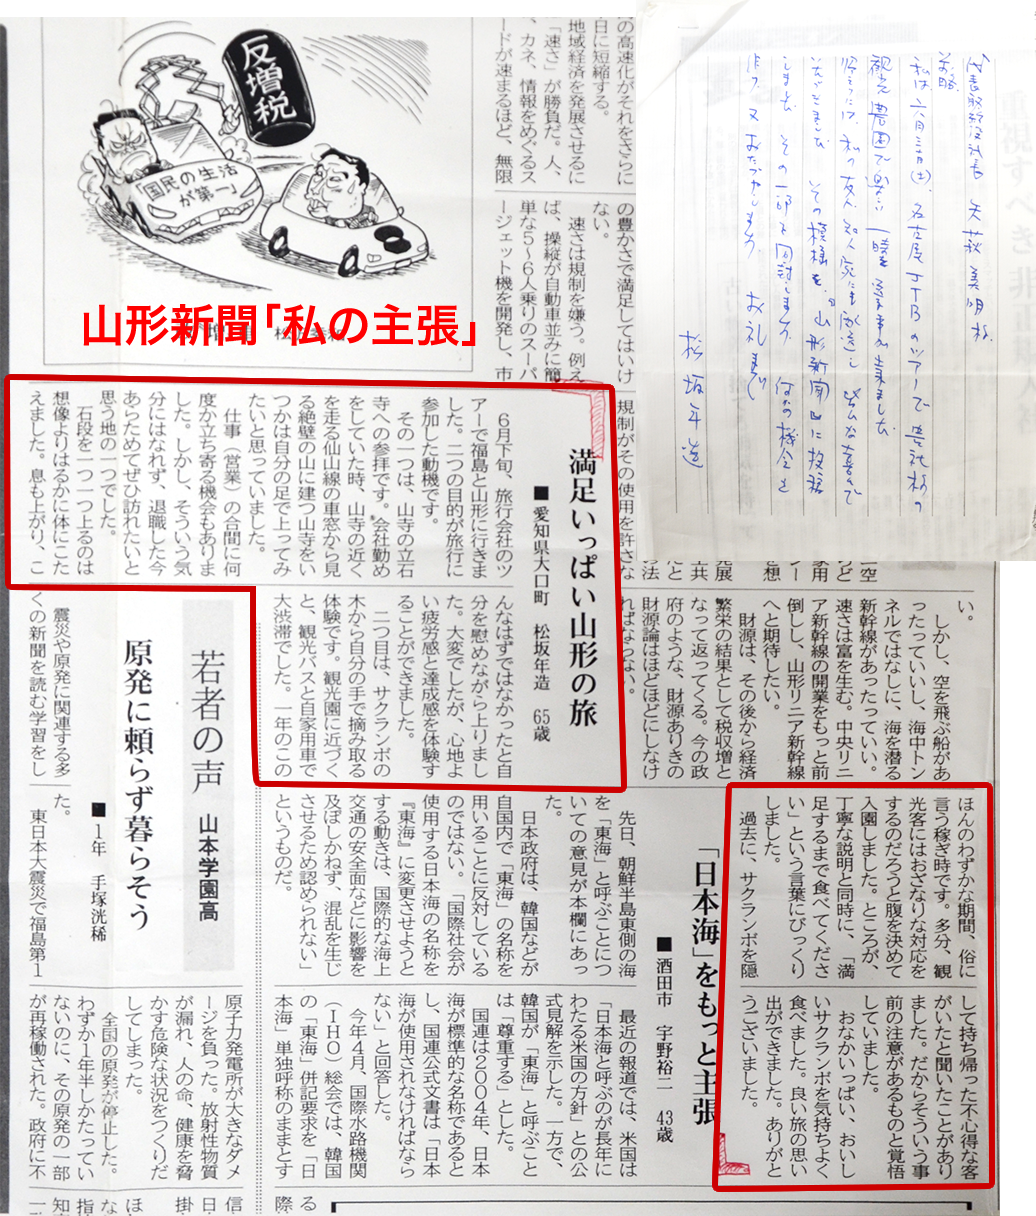 山形新聞「私の主張」
反増税
「国民の生活
が第一」
矢萩美明様
前略
私は六月三十日(土)、名古屋JTBのツアーで貴社様の
観光農園で楽しい一時を過す事が出来ました
私の友人、知人家にも配送し皆んな喜んで
その模様を『山形新聞』に投稿
しました。その一部を同封します。何かの機会を
作り又おたずねします。お礼まで
松坂年造
の高速化がそれをさらに
日に短縮する。
地域経済を発展させるに
「速さ」が勝負だ。人、
カネ、情報をめぐるス
ードが速まるほど、無限
の豊かさで満足してはいけ
ない。
速さは規制を嫌う。例え
ば、操縦が自動車並みに簡
単な5〜6人乗りのスーパ
ージェット機を開発し、市
規制がその使用を許さな
い。
しかし、空を飛ぶ船があ
ったっていいし、海中トン
ネルではなしに、海を潜る
新幹線があったっていい。
速さは富を生む。中央リニ
ア新幹線の開業をもっと前
倒しし、山形リニア新幹線
へと期待したい。
財源は、その後から経済
繁栄の結果として税収増と
なって返ってくる。今の政
府のような、財源ありきの
財源論はほどほどにしなけ
ればならない。
満足いっぱい山形の旅
■愛知県大口町 松坂年造 65歳
6月下旬、旅行会社のツ
アーで福島と山形に行きま
した。二つの目的が旅行に
参加した動機です。
その一つは、山寺の立石
寺への参拝です。会社勤め
をしていた時、山寺の近く
を走る仙山線の車窓から見
る絶壁の山に建つ山寺をい
つかは自分の足で上ってみ
たいと思っていました。
仕事(営業)の合間に何
度か立ち寄る機会もありま
した。しかし、そういう気
分にはなれず、退職した今
あらためてぜひ訪れたいと
思う地の一つでした。
石段を一つ一つ上るのは
想像よりはるかに体にこた
えました。息も上がり、こ
んなはずではなかったと自
分を慰めながら上りまし
た。大変でしたが、心地よ
い疲労感と達成感を体験す
ることができました。
二つ目は、サクランボの
木から自分の手で摘み取る
体験です。観光園に近づく
と、観光バスと自家用車で
大渋滞でした。一年のこの
ほんのわずかな期間、俗に
言う稼ぎ時です。多分、観
光客にはおざなりな対応を
するのだろうと腹を決めて
入園しました。ところが、
丁寧な説明と同時に、「満
足するまで食べてくださ
い」という言葉にびっくり
しました。
過去に、サクランボを隠
して持ち帰った不心得な客
がいたと聞いたことがあり
ました。だからそういう事
前の注意があるものと覚悟
していました。
おなかいっぱい、おいし
いサクランボを気持ちよく
食べました。良い旅の思い
出ができました。ありがと
うございました。
「日本海」をもっと主張
■酒田市 宇野裕二 43歳
先日、朝鮮半島東側の海
を「東海」と呼ぶことにつ
いての意見が本欄にあっ
た。
日本政府は、韓国などが
自国内で「東海」の名称を
用いることに反対している
のではない。「国際社会が
使用する日本海の名称を
『東海』に変更させようと
する動きは、国際的な海上
交通の安全面などに影響を
及ぼしかねず、混乱を生じ
させるため認められない」
というものだ。
最近の報道では、米国は
「日本海と呼ぶのが長年に
わたる米国の方針」との公
式見解を示した。一方で、
韓国が「東海」と呼ぶこと
は「尊重する」とした。
国連は2004年、日本
海が標準的な名称であると
し、国連公式文書は「日本
海が使用されなければなら
ない」と回答した。
今年4月、国際水路機関
(IHO)総会では、韓国
の「東海」併記要求を「日
本海」単独呼称のままとす
る
際
若者の声
山本学園高
原発に頼らず暮らそう
■1年 手塚洸稀
震災や原発に関連する多
くの新聞を読む学習をし
た。
東日本大震災で福島第1
原子力発電所が大きなダメ
ージを負った。放射性物質
が漏れ、人の命、健康を脅
かす危険な状況をつくりだ
してしまった。
全国の原発が停止した。
わずか1年半しかたってい
ないのに、その原発の一部
が再稼働された。政府に不
信
日
掛